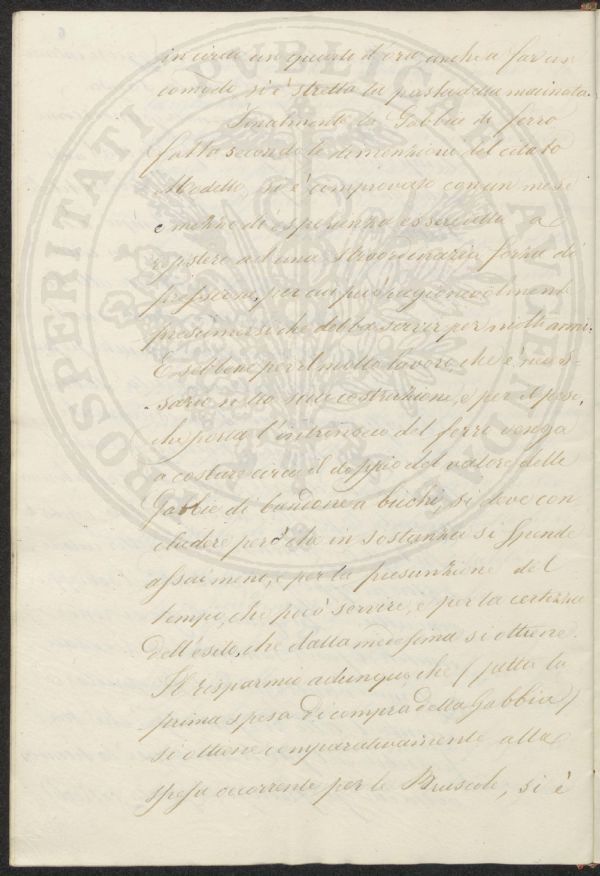 in circa un quarto d'ora, anche a far un
comodo si è stretta la pasta della macinata.
Finalmente la Gabbia di ferro
fatta secondo le dimensioni del citato
Modello, si è comprovato con un mese
e mezzo di esperienza essere atta a
resistere ad una straordinaria forza di
pressione, per cui può ragionevolment
presumersi che debba servir per molti anni.
E sebbene per il molto lavoro, che è neces-
sario nella sua costruzione, e per il peso,
che porta l'intrinseco del ferro venga
a costare circa il doppio del valore delle
Gabbie di bandone a buchi, si deve con
cludere però che in sostanza si spende
assai meno, e per la presunzione del
tempo, che può servire, e per la certezza
dell'esito, che dalla medesima si ottiene.
Il risparmio adunque che (fatta la
prima spesa di compra della Gabbia)
si ottiene comparativamente alla
spesa occorrente per le Bruscole, si è
PROSPERITATI PUBLICAE AUGENDAE